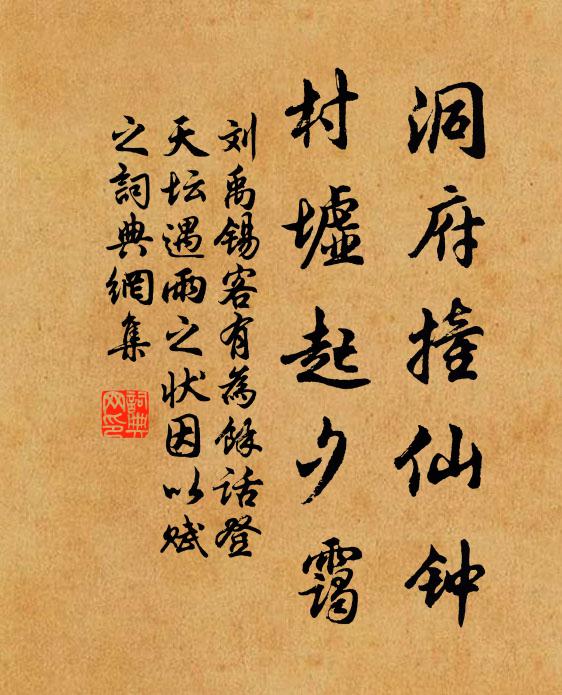 洞府撞仙钟
村墟起夕靄
刘禹锡客有為餘话登
天坛遇雨之状因以赋
之詞典網集
詞典
网印